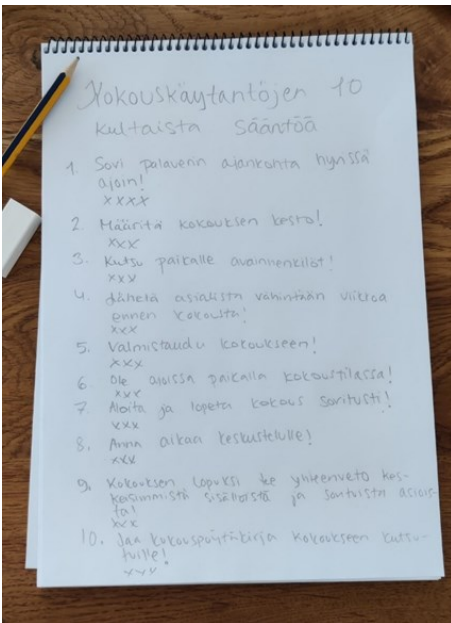 Kokouskäytäntöjen 10
kultaista sääntöä
1. Sovi palaverin ajankohta hyvissä
ajoin!
xxxx
2. Määritä kokouksen kesto!
xxx
3. Kutsu paikalle avainhenkilöt!
xxx
4. Lähetä asialista vähintään viikkoa
ennen kokousta!
xxx
5. Valmistaudu kokoukseen!
xxx
6. Ole ajoissa paikalla kokoustilassa!
xxx
7. Aloita ja lopeta kokous sovitusti!
xxx
8. Anna aikaa keskustelulle!
xxx
9. Kokouksen lopuksi tee yhteenveto kes-
keisimmistä sisällöistä ja sovituista asiois-
ta!
xxx
10. Jaa kokouspöytäkirja kokoukseen kutsu-
tuille!
xxx